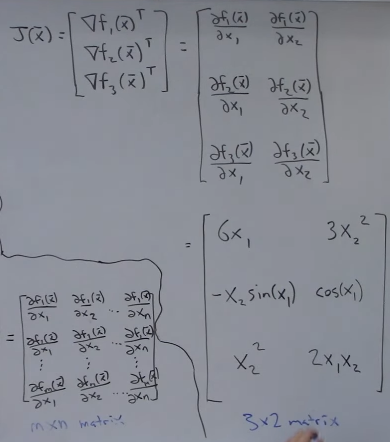 J(x̄) = [ ∇f₁(x̄)ᵀ ; ∇f₂(x̄)ᵀ ; ∇f₃(x̄)ᵀ ] = [ ∂f₁(x̄)/∂x₁ ∂f₁(x̄)/∂x₂ ; ∂f₂(x̄)/∂x₁ ∂f₂(x̄)/∂x₂ ; ∂f₃(x̄)/∂x₁ ∂f₃(x̄)/∂x₂ ]
= [ 6x₁ 3x₂² ; -x₂ sin(x₁) cos(x₁) ; x₂² 2x₁x₂ ]
3x2 matrix
= [ ∂f₁(x̄)/∂x₁ ∂f₁(x̄)/∂x₂ ... ∂f₁(x̄)/∂xₙ ; ∂f₂(x̄)/∂x₁ ∂f₂(x̄)/∂x₂ ... ∂f₂(x̄)/∂xₙ ; ⋮ ⋮ ⋮ ; ∂fₘ(x̄)/∂x₁ ∂fₘ(x̄)/∂x₂ ... ∂fₘ(x̄)/∂xₙ ]
mxn matrix